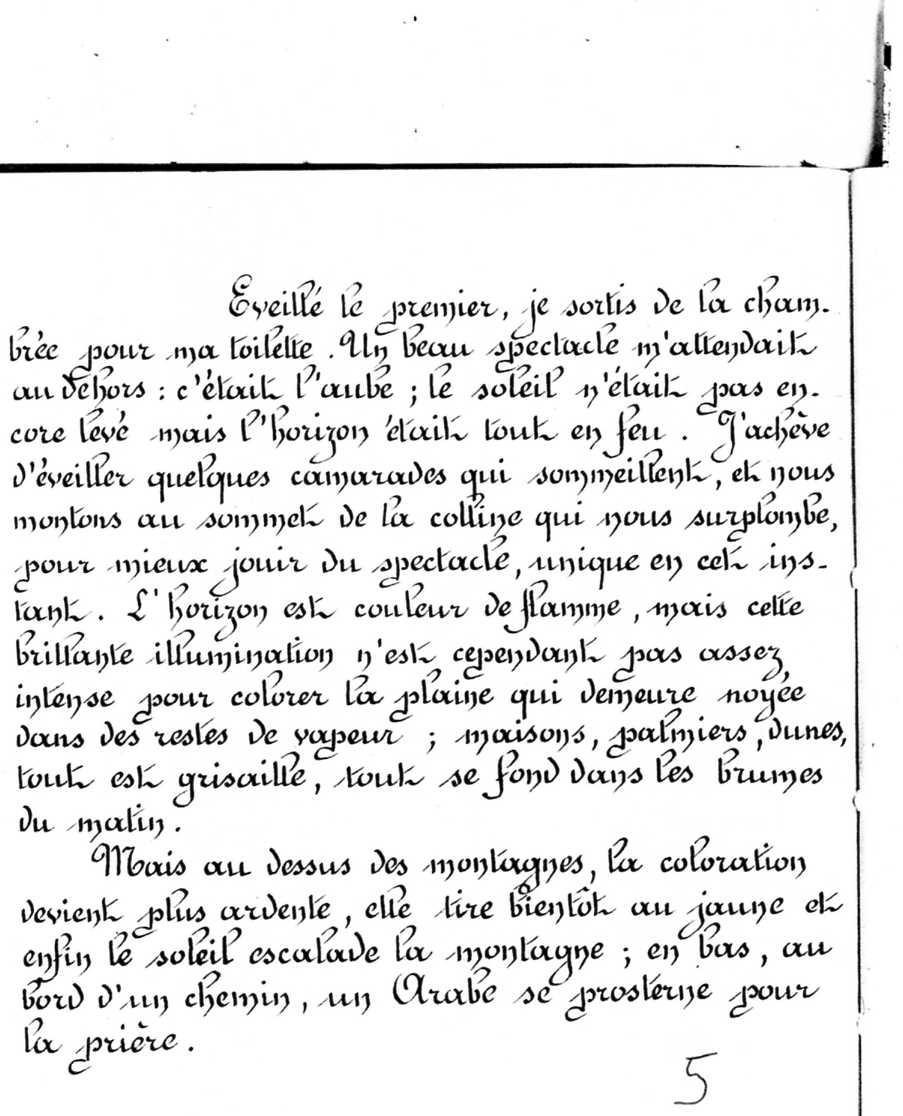 Eveillé le premier, je sortis de la cham-
brée pour ma toilette. Un beau spectacle m'attendait
au dehors : c'était l'aube ; le soleil n'était pas en-
core levé mais l'horizon était tout en feu. J'achève
d'éveiller quelques camarades qui sommeillent, et nous
montons au sommet de la colline qui nous surplombe,
pour mieux jouir du spectacle, unique en cet ins-
tant. L'horizon est couleur de flamme, mais cette
brillante illumination n'est cependant pas assez
intense pour colorer la plaine qui demeure noyée
dans des restes de vapeur ; maisons, palmiers, dunes,
tout est grisaille, tout se fond dans les brumes
du matin.
Mais au dessus des montagnes, la coloration
devient plus ardente, elle tire bientôt au jaune et
enfin le soleil escalade la montagne ; en bas, au
bord d'un chemin, un Arabe se prosterne pour
la prière.
5